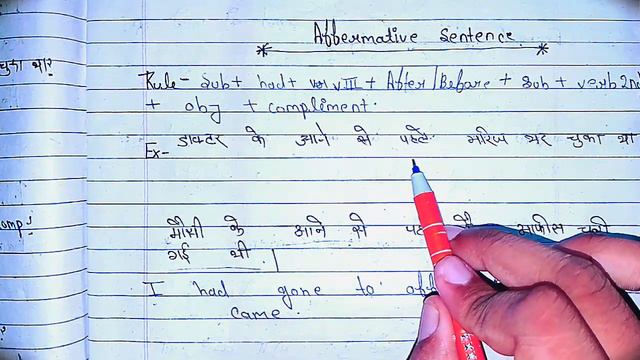 Affermative Sentence
चुका था?
Rule- sub + had + ver V III + After/Before + sub + verb 2nd
+ obj + compliment.
Ex- डाक्टर के आने से पहले मरिज मर चुका था
omp!
मौसी के आने से चुकी
गई थी |
I had gone to
came.